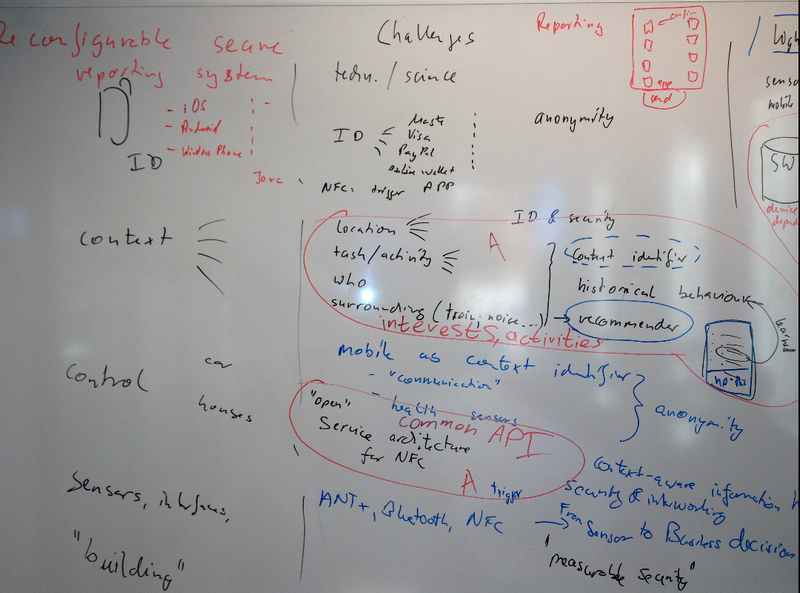 Reconfigurable secure
reporting system
- iOS
- Android
- Windows Phone
ID
Challenges
techn. / science
ID
Visa
PayPal
online wallet
NFC: trigger APP
Reporting
app
send
anonymity
sens
mobile
SW
device
context
location
task/activity
who
surrounding (train, noise...)
interests, activities
A
ID & security
context identifier
historical behaviour
recommender
learned
control
car
houses
mobile as context identifier
- "communication"
- health sensors
anonymity
"open"
common API
Service architecture
for NFC
A trigger
context-aware information
security & interworking
Sensors, interfaces,
"building"
ANT+, Bluetooth, NFC
From Sensor to Business decision
"measurable security"